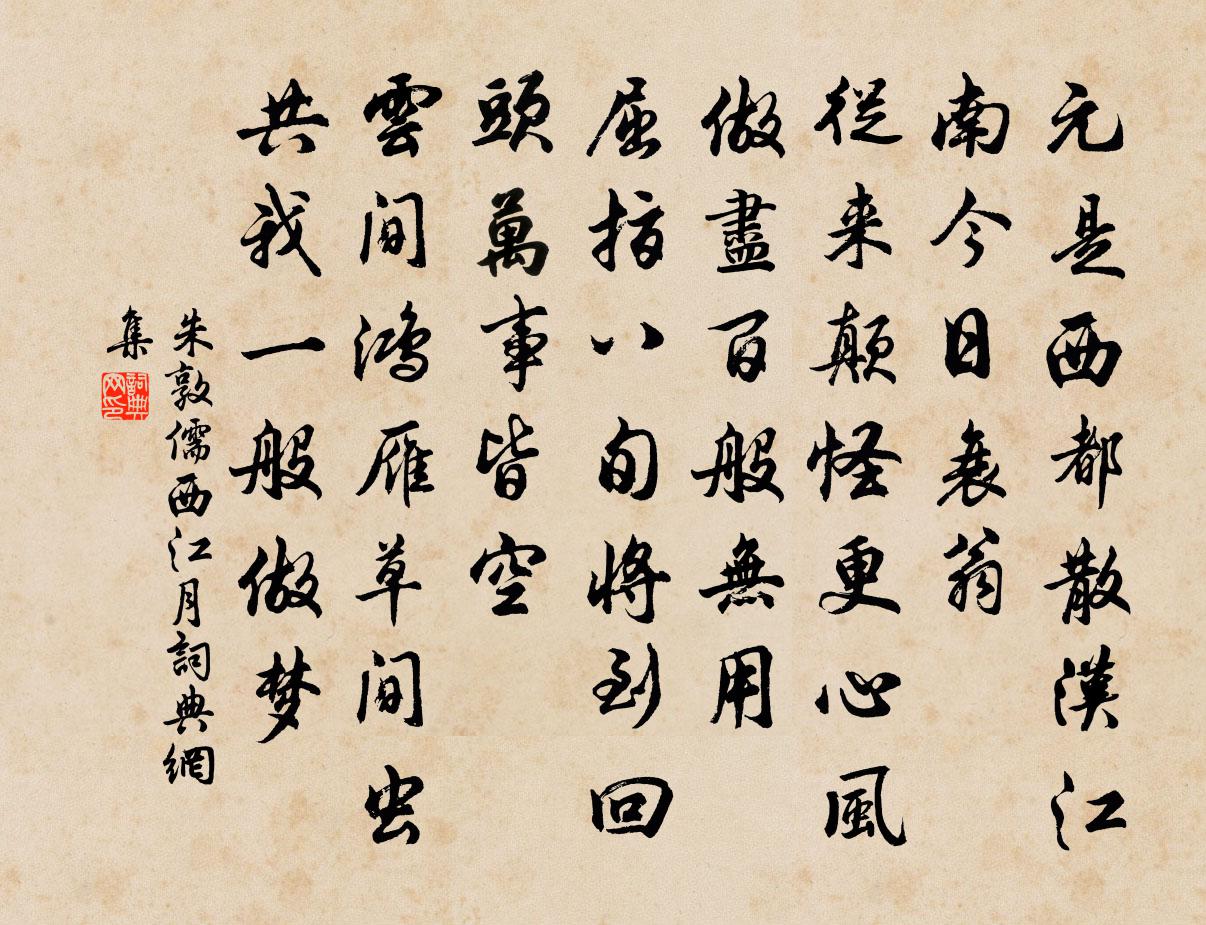 元是西都散漢江
南今日衰翁
從来顛怪更心風
做盡百般無用
屈指八旬將到回
頭萬事皆空
雲間鴻雁草間虫
共我一般做梦
朱敦儒西江月詞典網
集
詞典网印